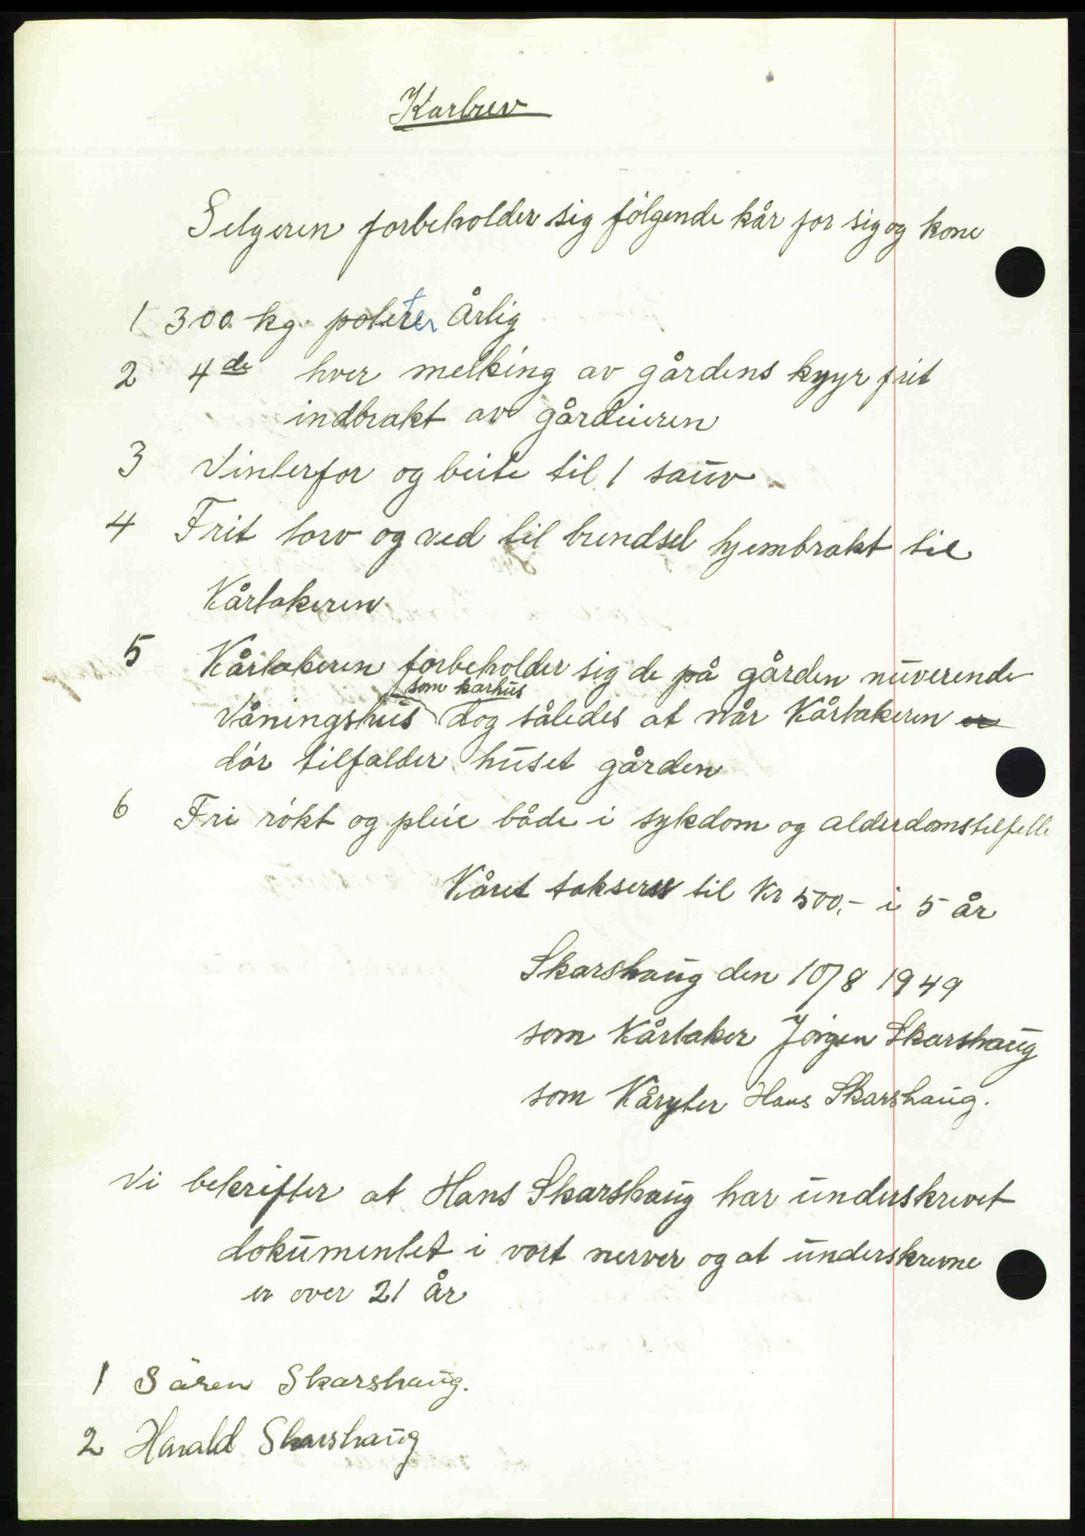 Karbrev
Selgeren forbeholder sig følgende kår for sig og kone
1 300 kg. poteter Årlig
2 4de hver melking av gårdens kyyr frit
indbrakt av gårdeieren
3 Vinterfor og beite til 1 sauv
4 Frit torv og ved til brendsel hjembrakt til
Kårtakeren
5 Kårtakeren forbeholder sig de på gården nuverende
som karhus
Våningshus dog således at når Kårtakeren er
dør tilfalder huset gården
6 Fri røkt og pleie både i sykdom og alderdomstilfelle
Kåret takseres til Kr 500,- i 5 år
Skarshaug den 10/8 1949
som Kårtaker Jørgen Skarshaug
som Kåryter Hans Skarshaug.
Vi bekrifter at Hans Skarshaug har underskrevet
dokumentet i vort nerver og at underskrevne
er over 21 år
1 Sären Skarshaug.
2 Harald Skarshaug